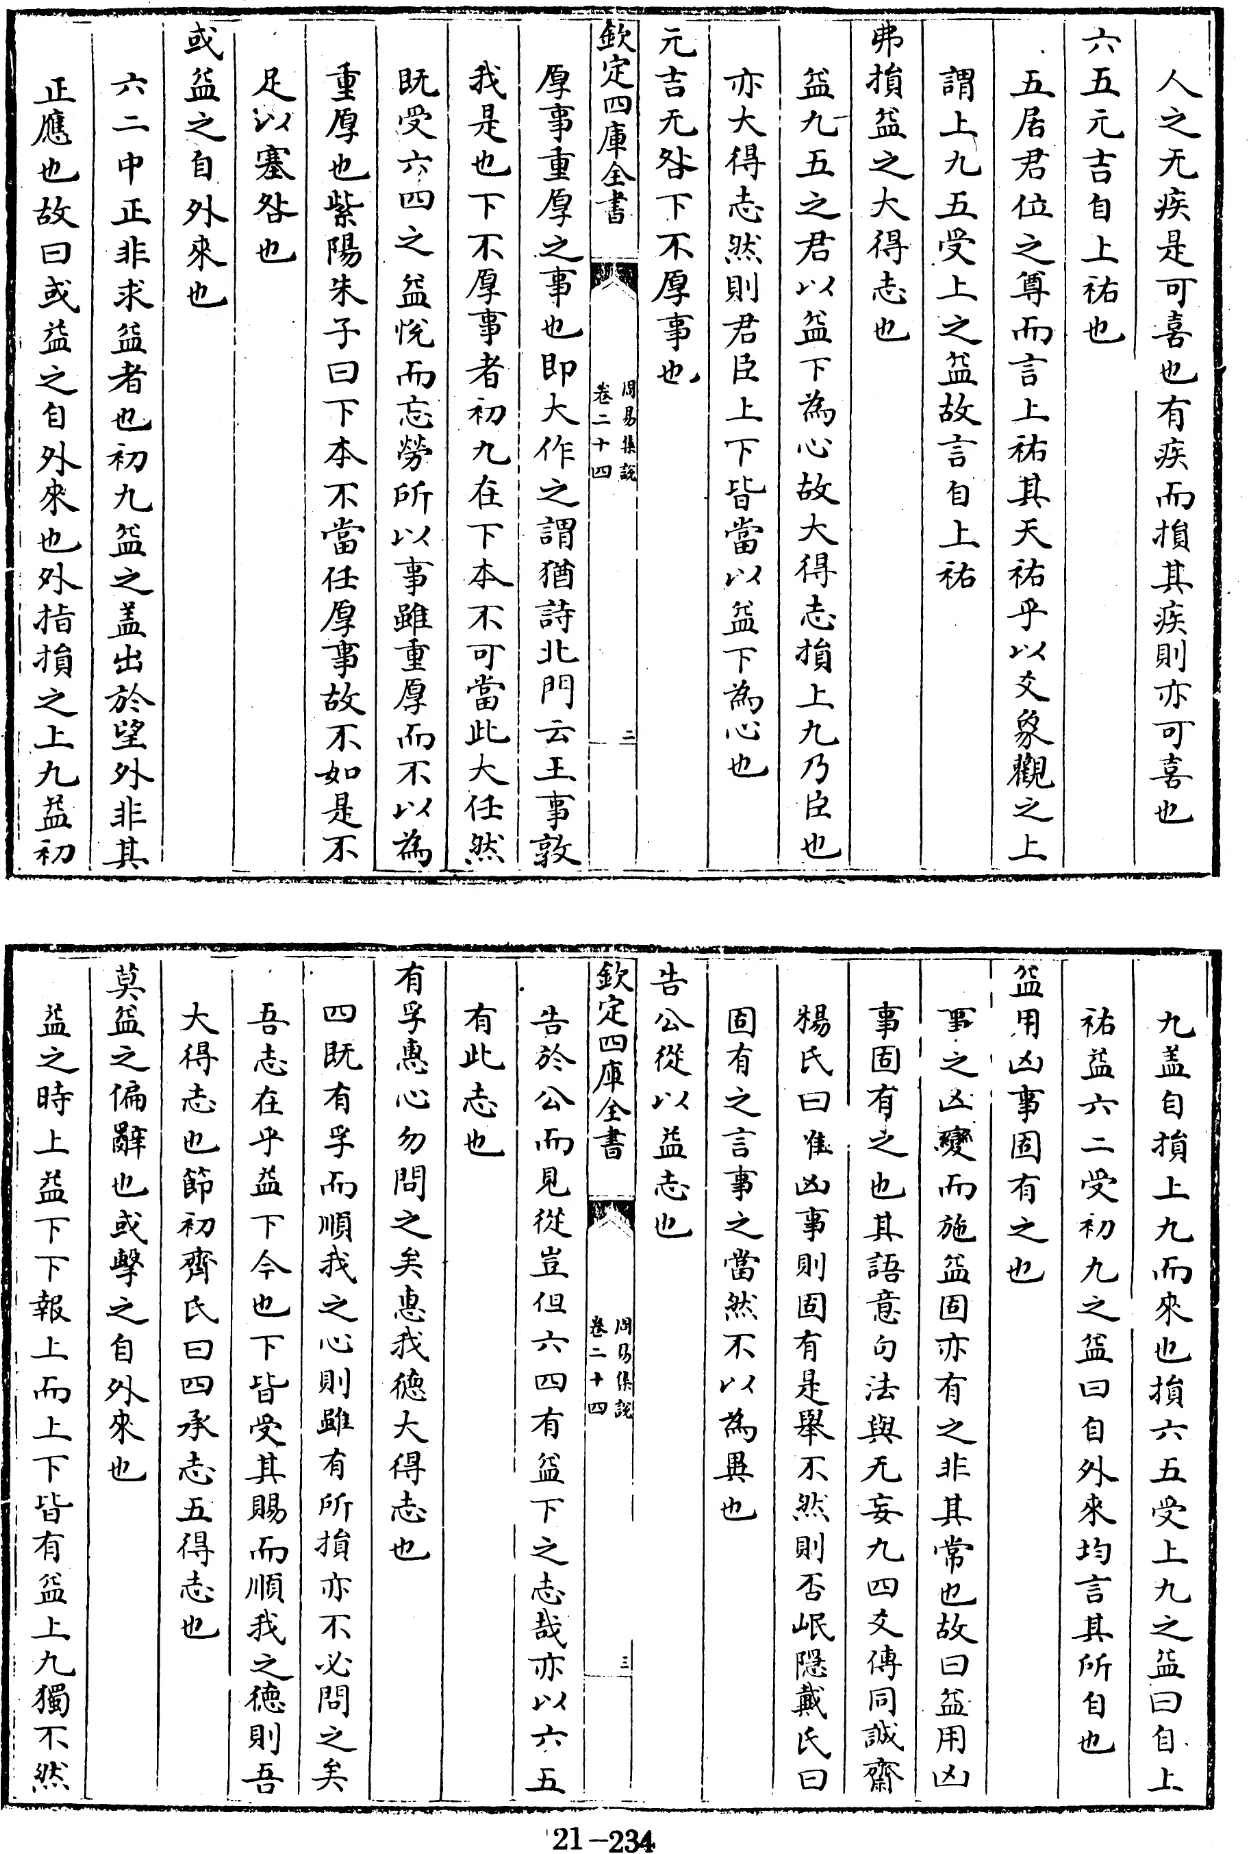 人之无疾是可喜也有疾而損其疾則亦可喜也
六五元吉自上祐也
五居君位之尊而言上祐其天祐乎以爻象觀之上
謂上九五受上之益故言自上祐
弗損益之大得志也
益九五之君以益下為心故大得志損上九乃臣也
亦大得志然則君臣上下皆當以益下為心也
元吉无咎下不厚事也
欽定四庫全書
周易集說
卷二十四
二
厚事重厚之事也即大作之謂猶詩北門云王事敦
我是也下不厚事者初九在下本不可當此大任然
既受六四之益悅而忘勞所以事雖重厚而不以為
重厚也紫陽朱子曰下本不當任厚事故不如是不
足以塞咎也
或益之自外來也
六二中正非求益者也初九益之蓋出於望外非其
正應也故曰或益之自外來也外指損之上九益初
九蓋自損上九而來也損六五受上九之益曰自上
祐益六二受初九之益曰自外來均言其所自也
益用凶事固有之也
事之凶變而施益固亦有之非其常也故曰益用凶
事固有之也其語意句法與无妄九四爻傳同誠齋
楊氏曰惟凶事則固有是舉不然則否岷隱戴氏曰
固有之言事之當然不以為異也
告公從以益志也
欽定四庫全書
周易集說
卷二十四
三
告於公而見從豈但六四有益下之志哉亦以六五
有此志也
有孚惠心勿問之矣惠我德大得志也
四既有孚而順我之心則雖有所損亦不必問之矣
吾志在乎益下今也下皆受其賜而順我之德則吾
大得志也節初齊氏曰四承志五得志也
莫益之偏辭也或擊之自外來也
益之時上益下下報上而上下皆有益上九獨不然
21-234